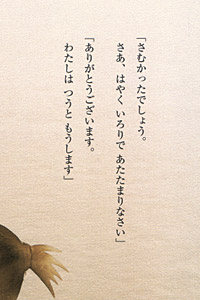 「さむかったでしょう。
さあ、はやく いろりで あたたまりなさい」
「ありがとうございます。
わたしは つうと もうします」